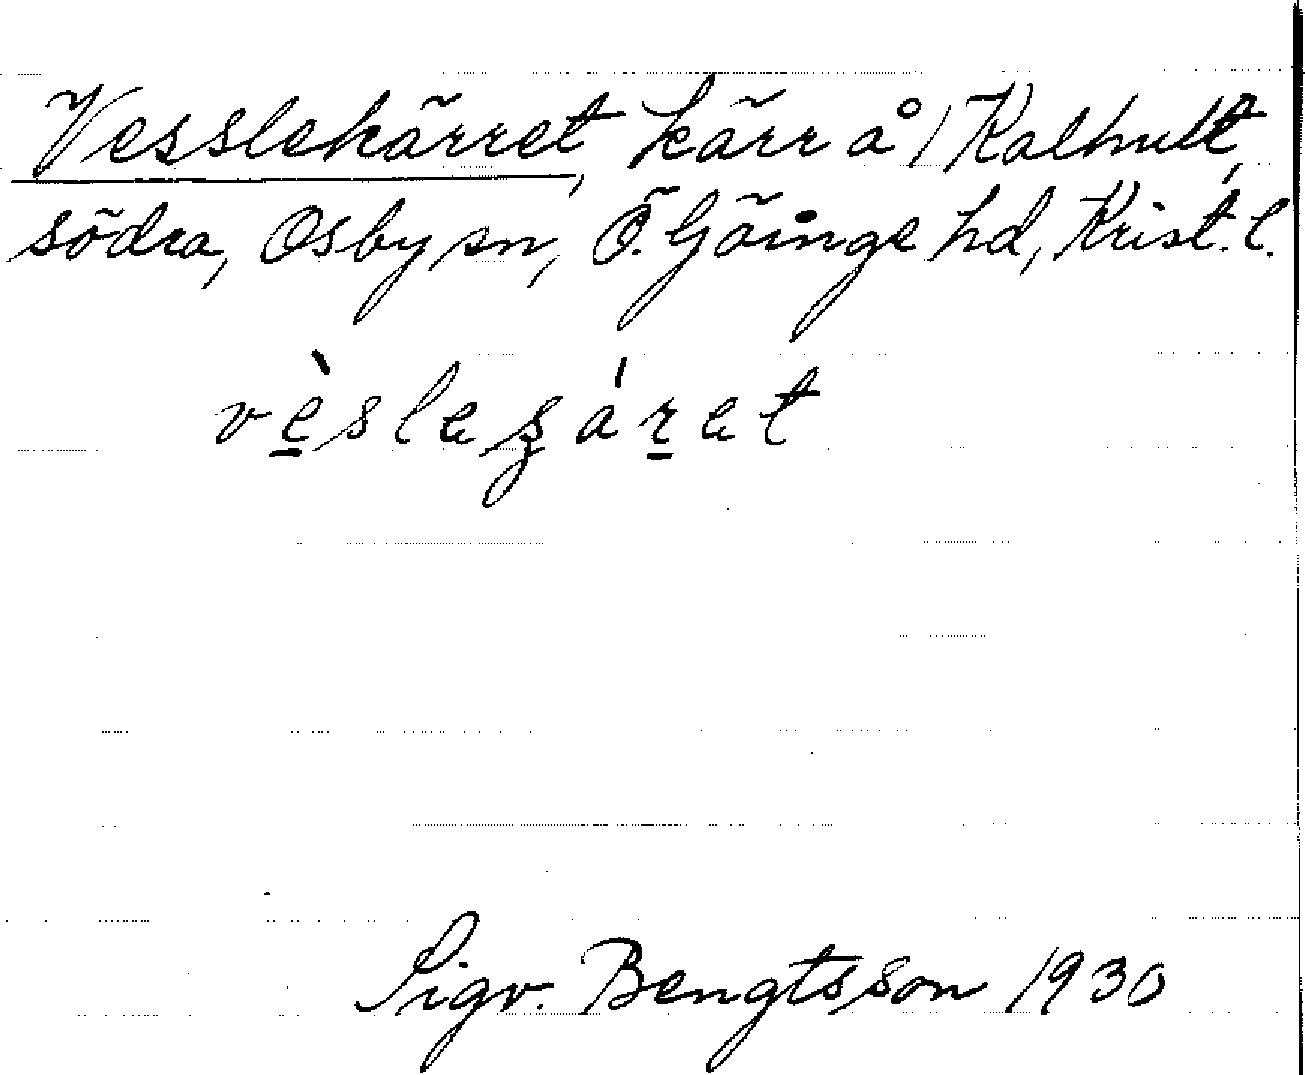 Vesslekärret, kärr å 1 Kalhult,
södra, Osby sn, Ö. Göinge hd, Krist. l.
vèsleʒáret
Sigv. Bengtsson 1930